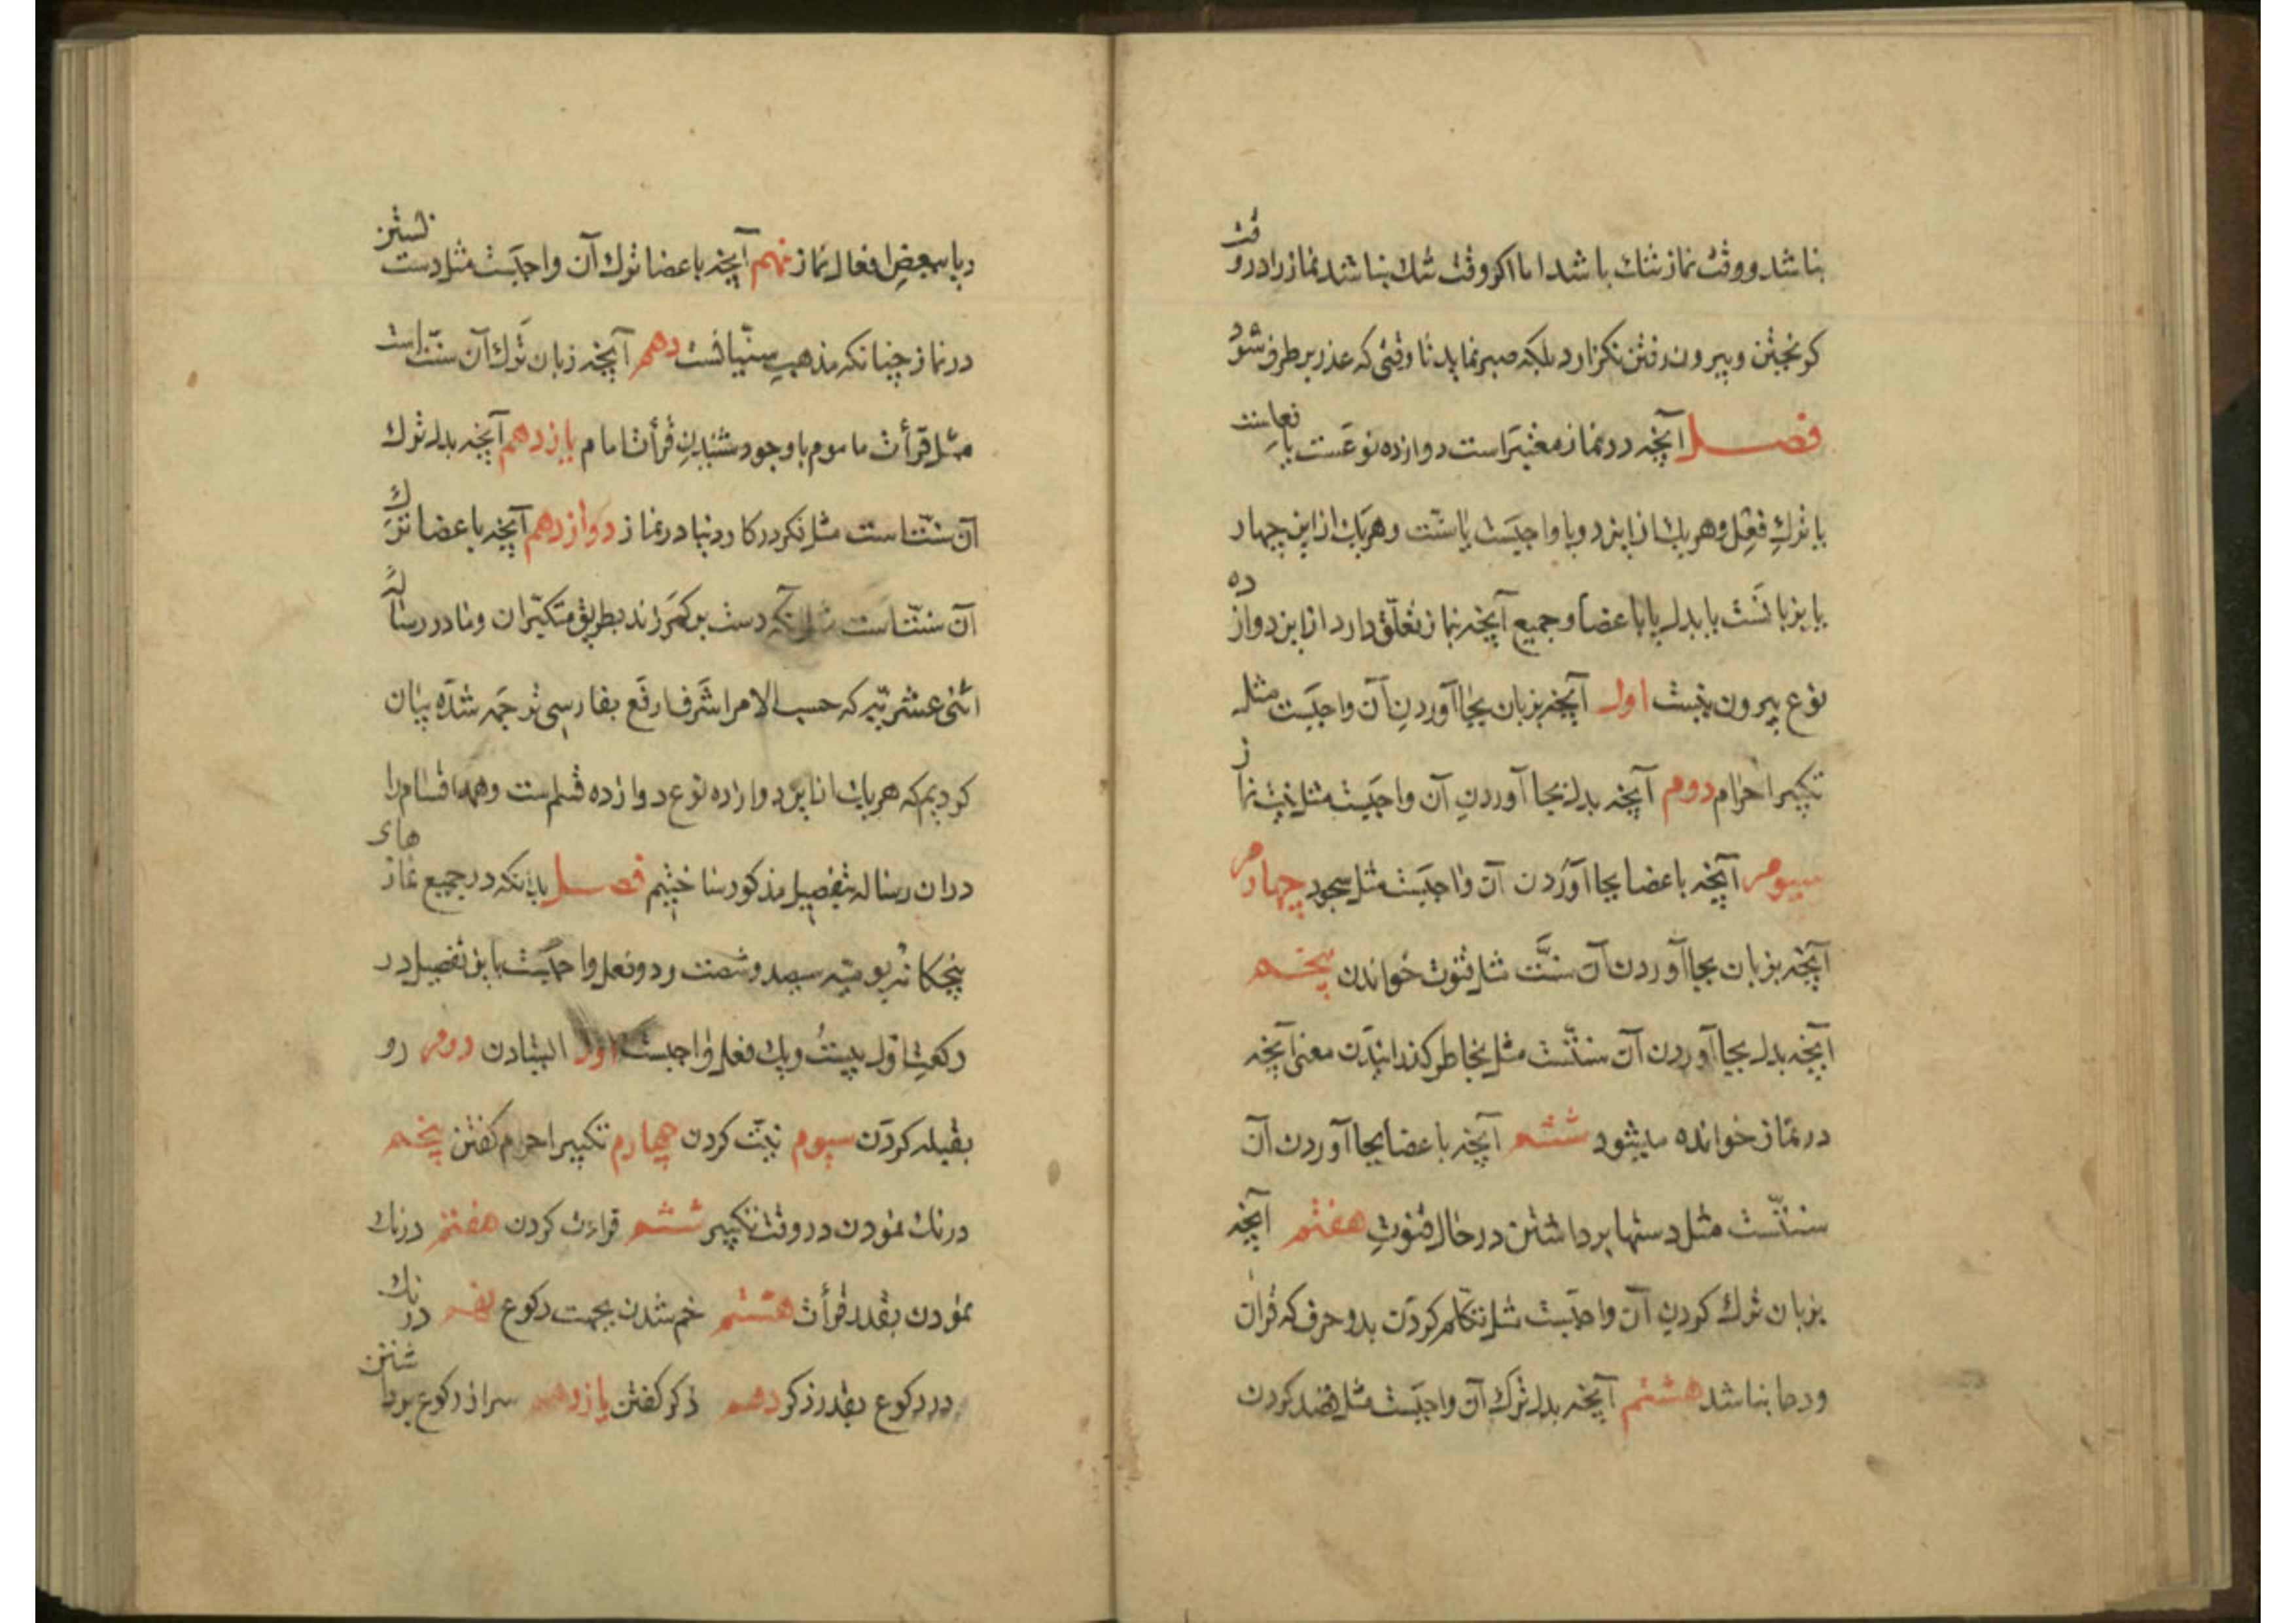 نباشد و وقت نماز تنك باشد اما اكر وقت تنك نباشد نماز را در وقت
كريختن و بيرون رفتن نكزارد بلكه صبر نمايد تا وقتى كه عذر بر طرف شود
فصل آنچه در نماز معتبر است دوازده نوعست يا فعلست
يا ترك فعل و هر يك از اين دو يا واجبست يا سنّت و هر يك از اين چهار
يا بزبانست يا بدل يا باعضا و جميع آنچه بنماز تعلّق دارد از اين دوازده
نوع بيرون نيست اول آنچه بزبان بجا آوردن آن واجبست مثل
تكبير احرام دوم آنچه بدل بجا آوردن آن واجبست مثل نيت نماز
سيوم آنچه باعضا بجا آوردن آن واجبست مثل سجود چهارم
آنچه بزبان بجا آوردن آن سنّت مثل قنوت خواندن پنجم
آنچه بدل بجا آوردن آن سنّتست مثل بخاطر كذرانيدن معنى آنچه
در نماز خوانده ميشود ششم آنچه باعضا بجا آوردن آن
سنّتست مثل دستها برداشتن در حال قنوت هفتم آنچه
بزبان ترك كردن آن واجبست مثل تكلم كردن بدو حرف كه قران
و دعا نباشد هشتم آنچه بدل ترك آن واجبست مثل قصد كردن
ريا ببعض افعال نماز نهم آنچه باعضا ترك آن واجبست مثل دست بستن
در نماز چنانكه مذهب سنّيانست دهم آنچه زبان ترك آن سنّت است
مثل قرأت ماموم با وجود شنيدن قرأت امام يازدهم آنچه بدل ترك
آن سنّت است مثل فكر در كار دنيا در نماز دوازدهم آنچه باعضا ترك
آن سنّت است مثل آنكه دست بر كمر زند بطريق متكبّران و ما در رساله
اثنى عشريّه كه حسب الامر اشرف ارفع بفارسى ترجمه شده بيان
كرديم كه هر يك از اين دوازده نوع دوازده قسم است و همه اقسام را
در ان رساله بتفصيل مذكور ساختيم فصل بدانكه در جميع نمازهاى
پنجكانه يوميّه سيصد و شصت و دو فعل واجبست باين تفصيل در
ركعت اول بيست و يك فعل واجبست اول ايستادن دوم رو
بقبله كردن سيوم نيّت كردن چهارم تكبير احرام كفتن پنجم
درنك نمودن در وقت تكبير ششم قراءت كردن هفتم درنك
نمودن بقدر قرأت هشتم خم شدن بجهت ركوع نهم درنك
در ركوع بقدر ذكر دهم ذكر كفتن يازدهم سر از ركوع برداشتن